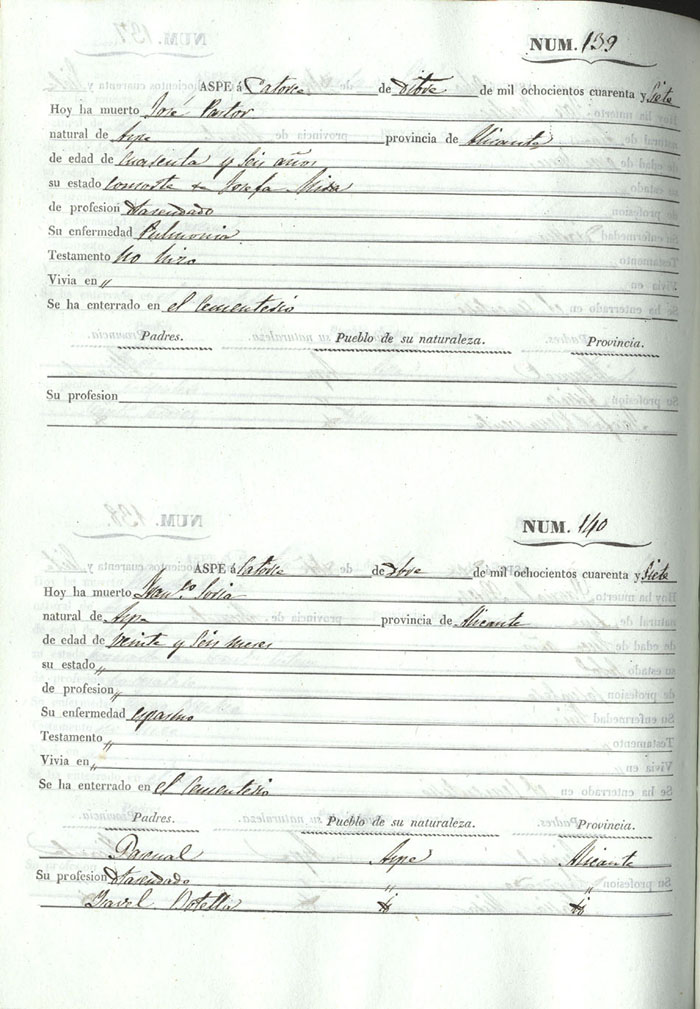 NUM. 139
ASPE á Catorce de Dibre de mil ochocientos cuarenta y Siete
Hoy ha muerto José Pastor
natural de Aspe provincia de Alicante
de edad de cuarenta y seis años
su estado consorte de Josefa Mira
de profesion Hasendado
Su enfermedad Pulmonia
Testamento No hizo
Vivia en "
Se ha enterrado en el Cementerio
Padres. Pueblo de su naturaleza. Provincia.
Su profesion
NUM. 140
ASPE á Catorce de Dbre de mil ochocientos cuarenta y Siete
Hoy ha muerto Franco Soria
natural de Aspe provincia de Alicante
de edad de veinte y seis meses
su estado "
de profesion "
Su enfermedad espasmo
Testamento "
Vivia en "
Se ha enterrado en el Cementerio
Padres. Pueblo de su naturaleza. Provincia.
Pascual Aspe Alicante
Su profesion Hasendado " "
Ysavel Botella id id